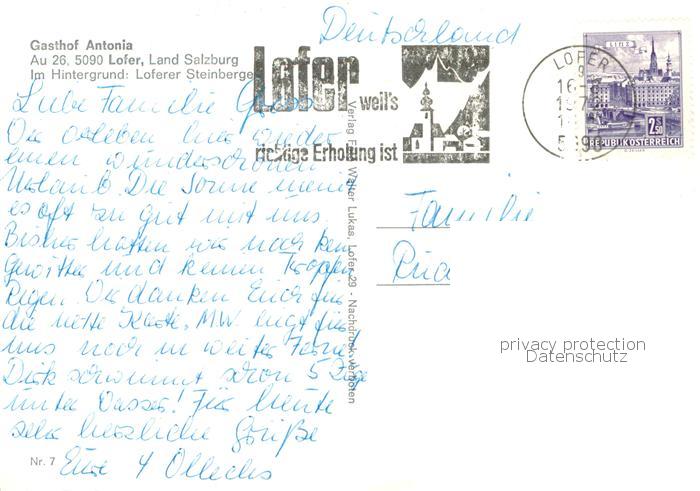 Gasthof Antonia
Au 26, 5090 Lofer, Land Salzburg
Im Hintergrund: Loferer Steinberge
Deutschland
Lofer
weil's
richtige Erholung ist
LINZ
2.50
REPUBLIK ÖSTERREICH
LOFER
5090
Liebe Familie
Wir erleben hier wieder
einen wunderschönen
Urlaub. Die Sonne meint
es oft zu gut mit uns.
Bisher hatten wir noch kein
Gewitter und keinen Tropfen
Regen. Wir danken Euch für
die nette Karte. M.W. liegt für
uns noch in weiter Ferne.
Dirk schwimmt schon 5
unter Wasser! Für heute
sehr herzliche Grüße
Eure 4
Nr. 7
Verlag Walter Lukas, Lofer 29 - Nachdruck verboten
Familie
privacy protection
Datenschutz